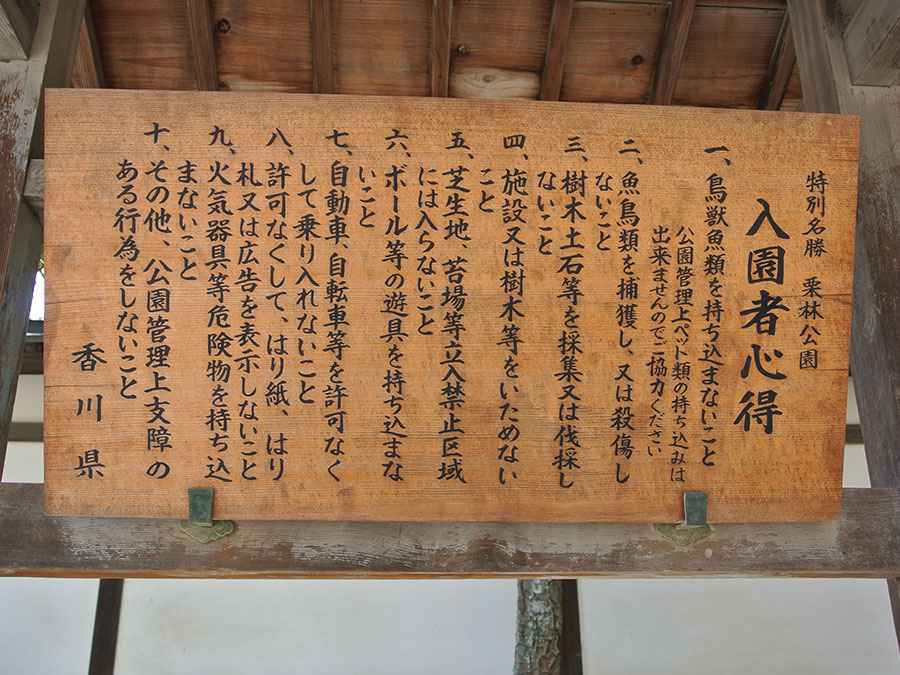 特別名勝 栗林公園
入園者心得
一、鳥獣魚類を持ち込まないこと
公園管理上ペット類の持ち込みは
出来ませんのでご協力ください
二、魚鳥類を捕獲し、又は殺傷し
ないこと
三、樹木土石等を採集又は伐採し
ないこと
四、施設又は樹木等をいためない
こと
五、芝生地、苔場等立入禁止区域
には入らないこと
六、ボール等の遊具を持ち込まな
いこと
七、自動車、自転車等を許可なく
して乗り入れないこと
八、許可なくして、はり紙、はり
札又は広告を表示しないこと
九、火気器具等危険物を持ち込
まないこと
十、その他、公園管理上支障の
ある行為をしないこと
香川県